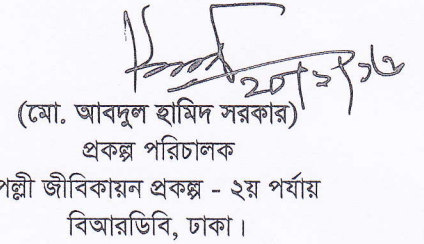 (মো. আবদুল হামিদ সরকার)
প্রকল্প পরিচালক
পল্লী জীবিকায়ন প্রকল্প - ২য় পর্যায়
বিআরডিবি, ঢাকা।